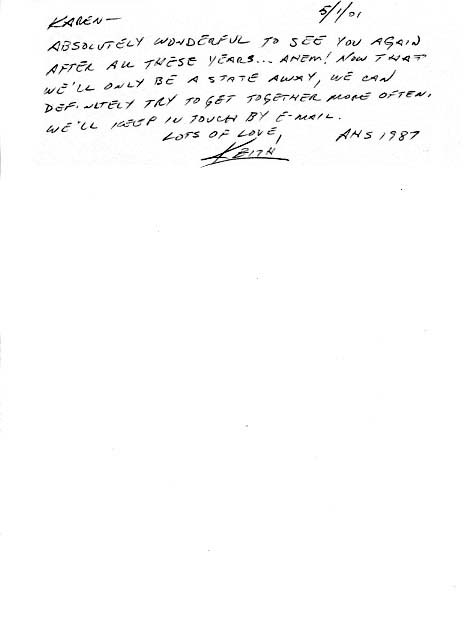 KAREN— 5/1/01
ABSOLUTELY WONDERFUL TO SEE YOU AGAIN
AFTER ALL THESE YEARS... AHEM! NOW THAT
WE'LL ONLY BE A STATE AWAY, WE CAN
DEFINITELY TRY TO GET TOGETHER MORE OFTEN.
WE'LL KEEP IN TOUCH BY E-MAIL.
LOTS OF LOVE, AHS 1987
KEITH